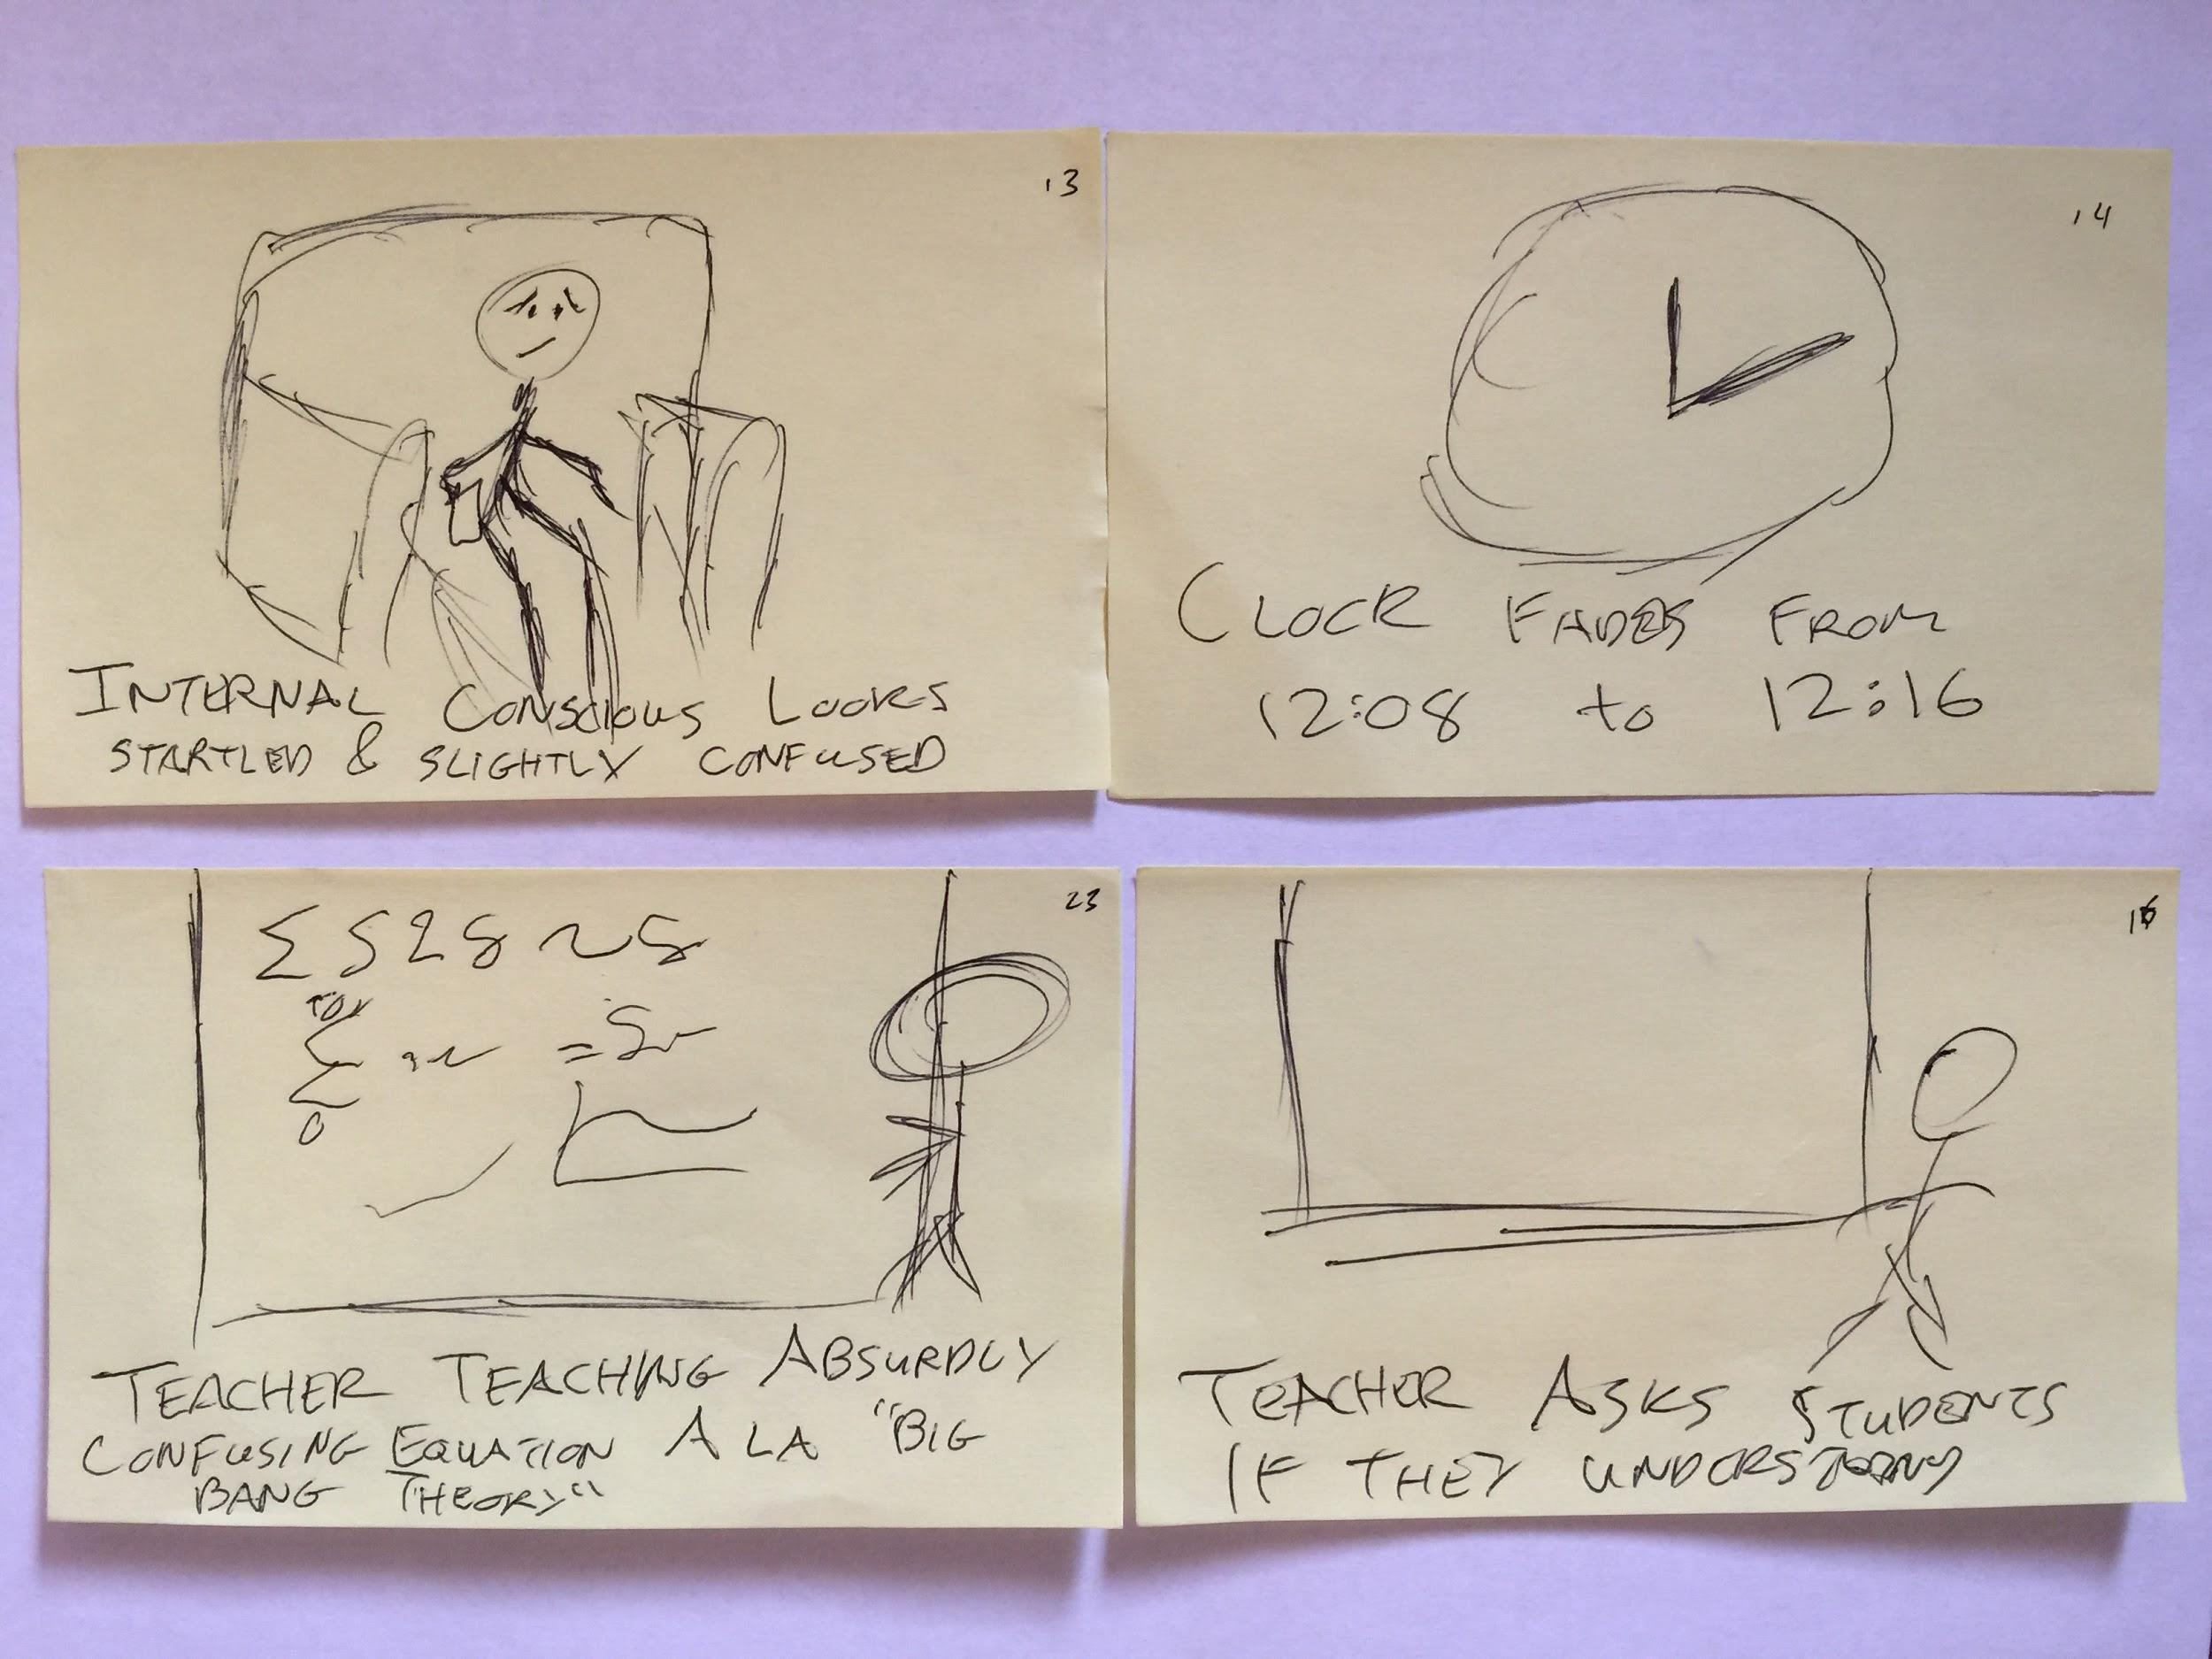 13
INTERNAL CONSCIOUS LOOKS
STARTLED & SLIGHTLY CONFUSED
14
CLOCK FADES FROM
12:08 to 12:16
23
TEACHER TEACHING ABSURDLY
CONFUSING EQUATION A LA "BIG
BANG THEORY"
16
TEACHER ASKS STUDENTS
IF THEY UNDERSTAND